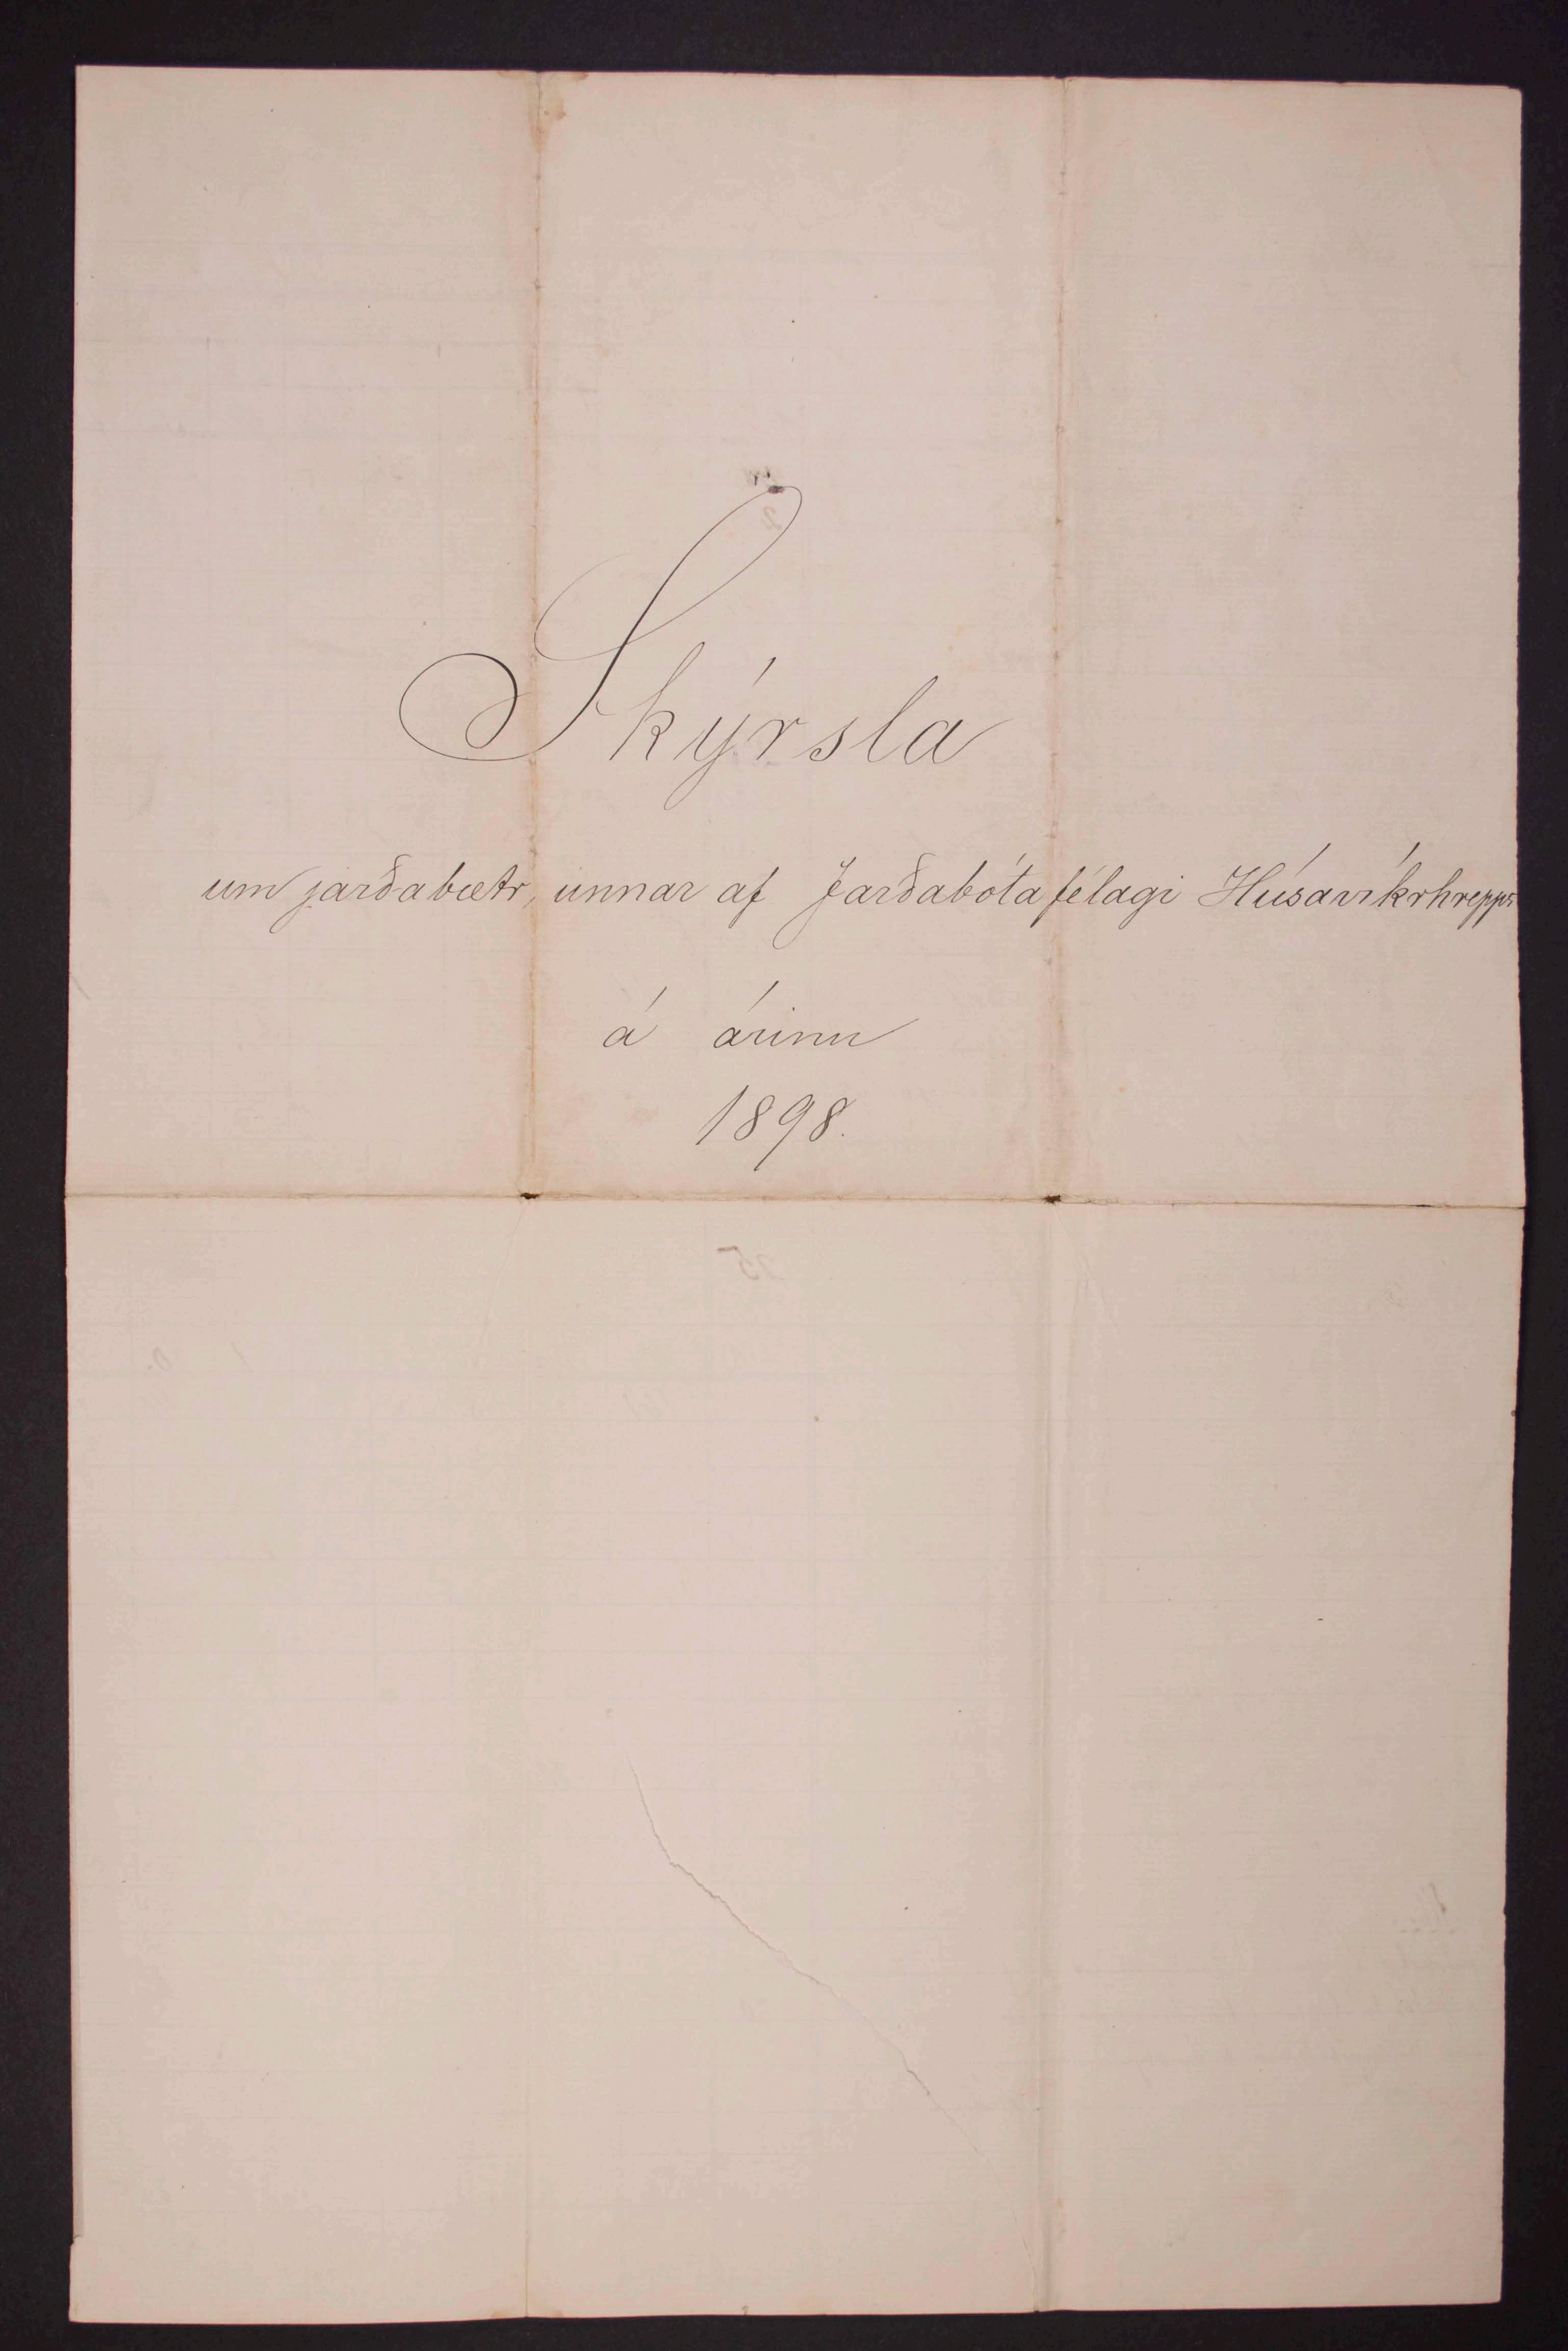 Skýrsla
um jarðabætr, unnar af Jarðabótafélagi Húsavíkrhrepps
á árinu
1898.